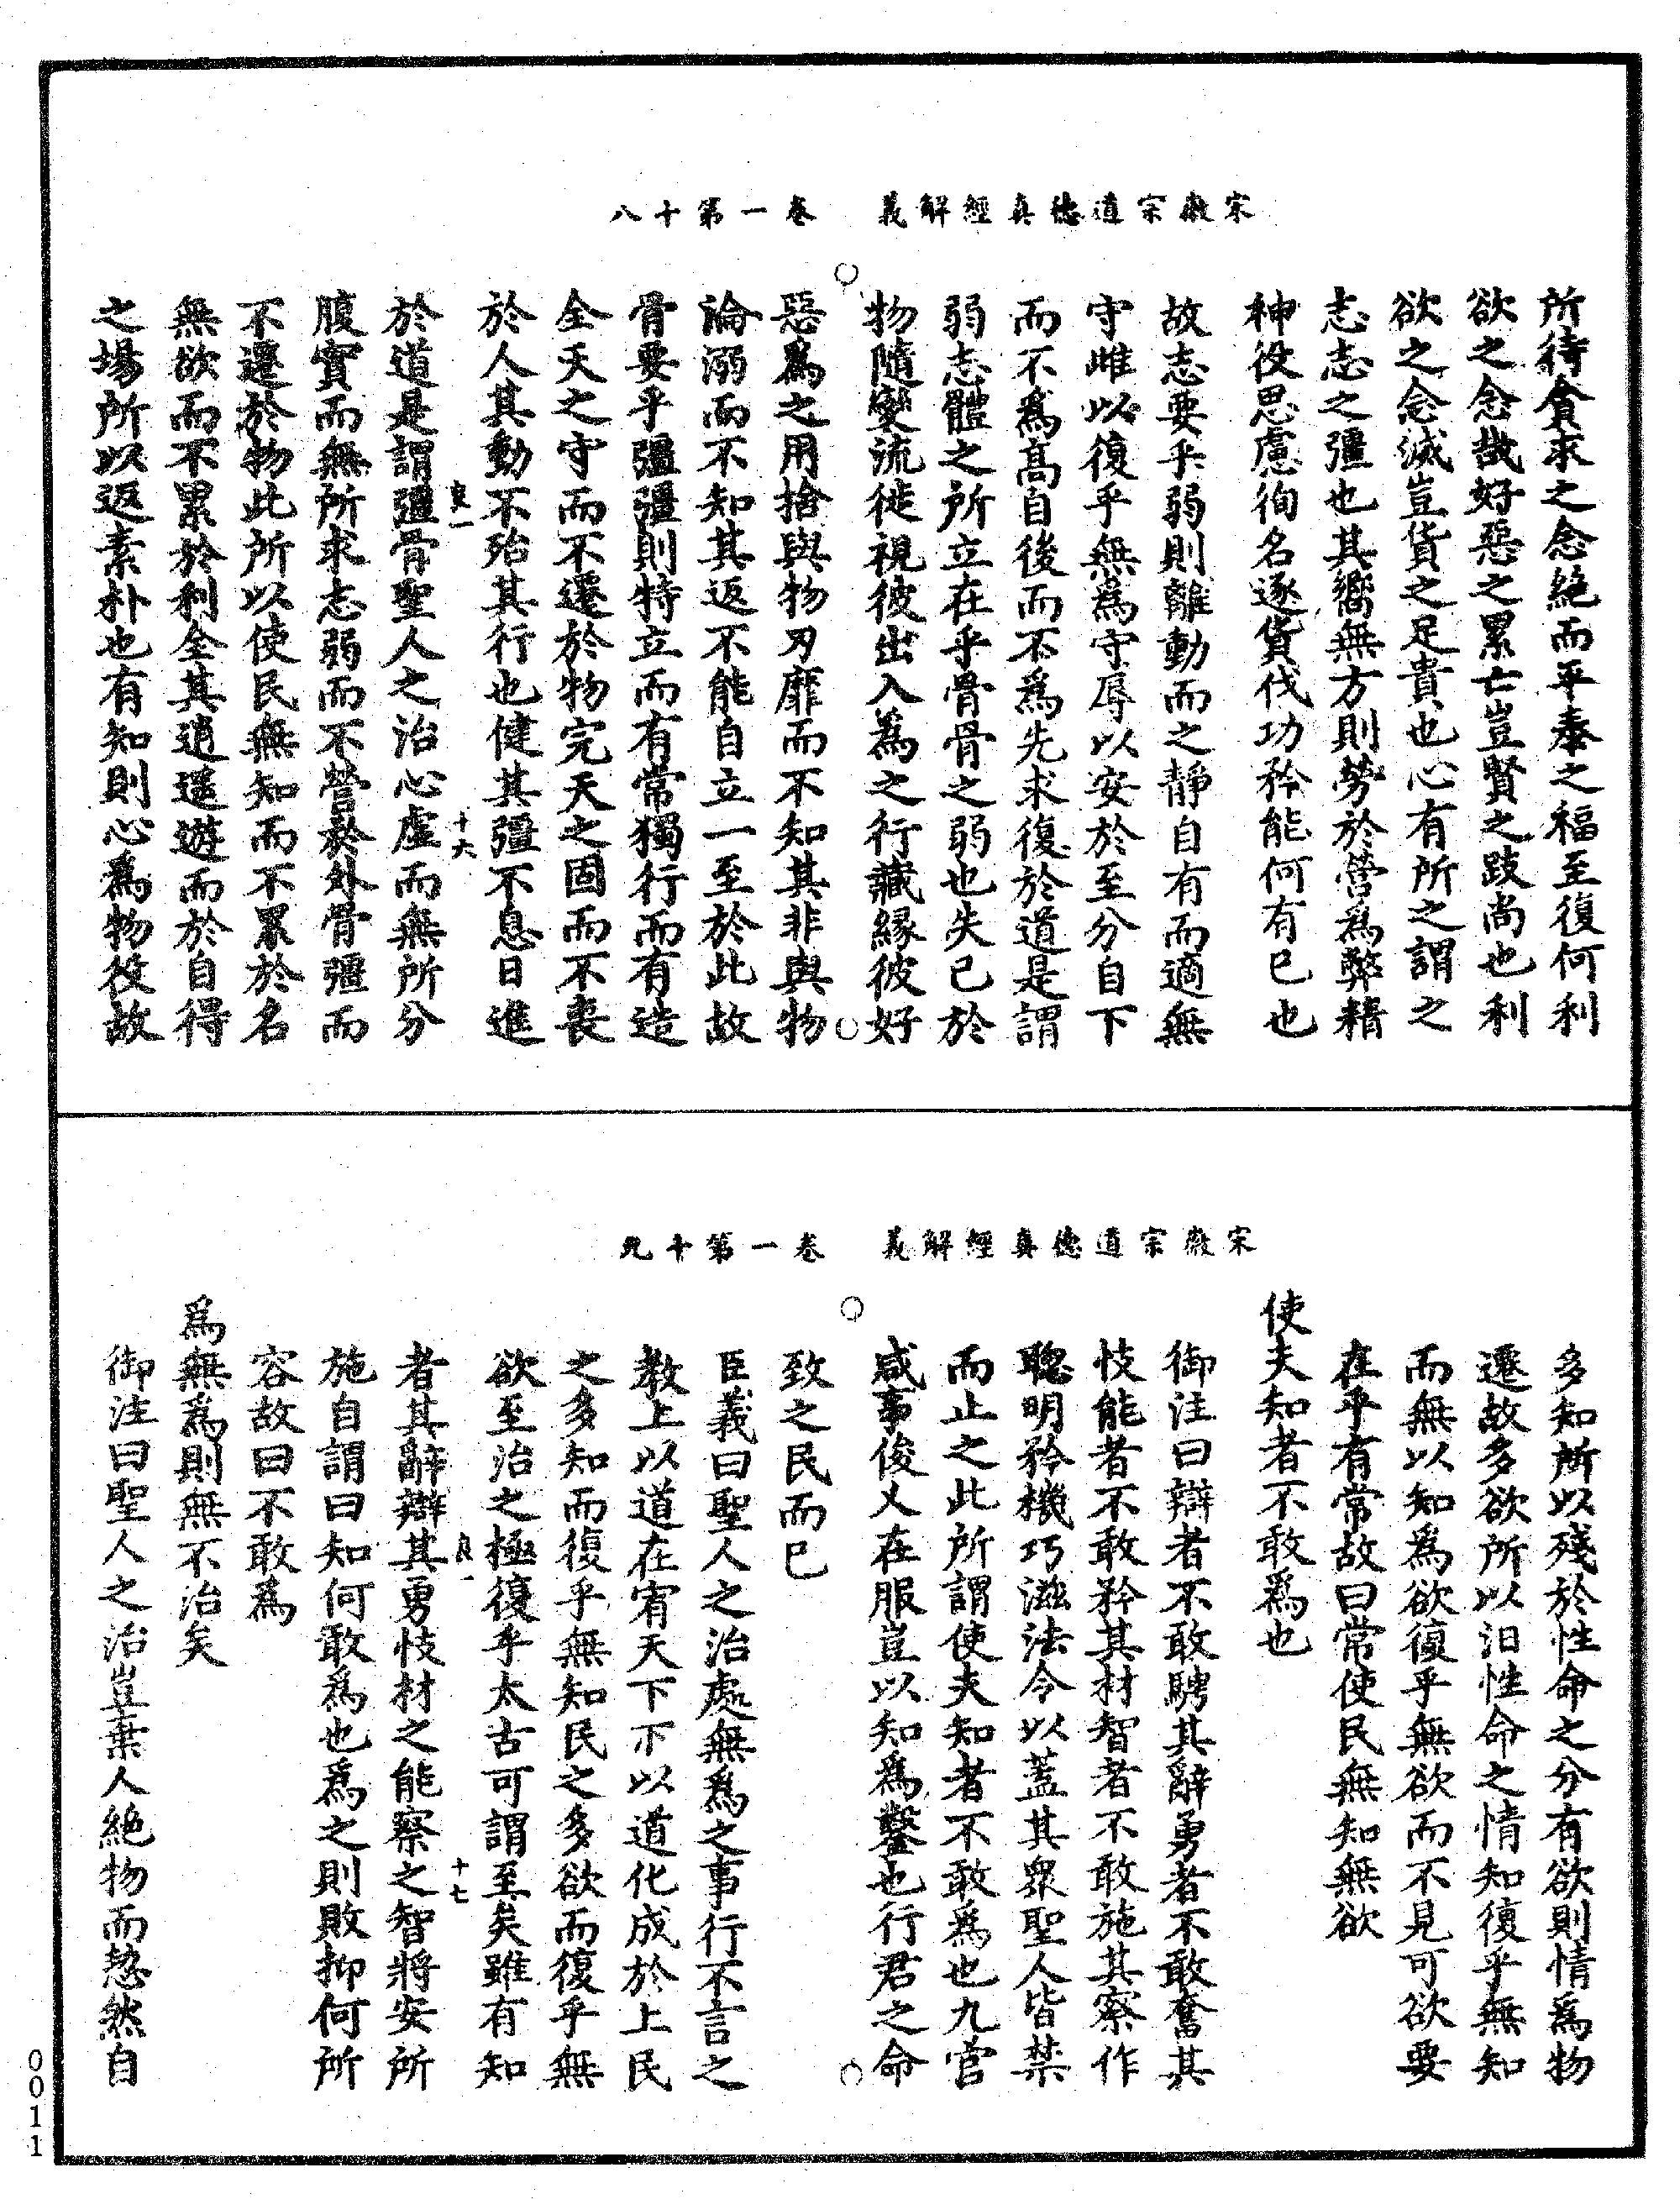 宋徽宗道德真經解義　卷一第十八
所待貪求之念絶而平奉之福至復何利
欲之念哉好惡之累亡豈賢之跂尚也利
欲之念滅豈貨之足貴也心有所之謂之
志志之彊也其嚮無方則勞於營為弊精
神役思慮徇名逐貨伐功矜能何有已也
故志要乎弱則離動而之靜自有而適無
守雌以復乎無為守辱以安於至分自下
而不為高自後而不為先求復於道是謂
弱志體之所立在乎骨骨之弱也失己於
物隨變流徙視彼出入為之行藏緣彼好
惡為之用捨與物刃靡而不知其非與物
淪溺而不知其返不能自立一至於此故
骨要乎彊彊則特立而有常獨行而有造
全天之守而不遷於物完天之固而不喪
於人其動不殆其行也健其彊不息日進
良一　十六
於道是謂彊骨聖人之治心虛而無所分
腹實而無所求志弱而不營於外骨彊而
不遷於物此所以使民無知而不累於名
無欲而不累於利全其逍遥遊而於自得
之場所以返素朴也有知則心為物役故
宋徽宗道德真經解義　卷一第十九
多知所以殘於性命之分有欲則情為物
遷故多欲所以汩性命之情知復乎無知
而無以知為欲復乎無欲而不見可欲要
在乎有常故曰常使民無知無欲
使夫知者不敢為也
御注曰辯者不敢騁其辭勇者不敢奮其
忮能者不敢矜其材智者不敢施其察作
聰明矜機巧滋法令以蓋其衆聖人皆禁
而止之此所謂使夫知者不敢為也九官
咸事俊乂在服豈以知為鑿也行君之命
致之民而已
臣義曰聖人之治處無為之事行不言之
教上以道在宥天下下以道化成於上民
之多知而復乎無知民之多欲而復乎無
欲至治之極復乎太古可謂至矣雖有知
良一　十七
者其辭辯其勇忮材之能察之智將安所
施自謂曰知何敢為也為之則敗抑何所
容故曰不敢為
為無為則無不治矣
御注曰聖人之治豈棄人絶物而恝然自
0011